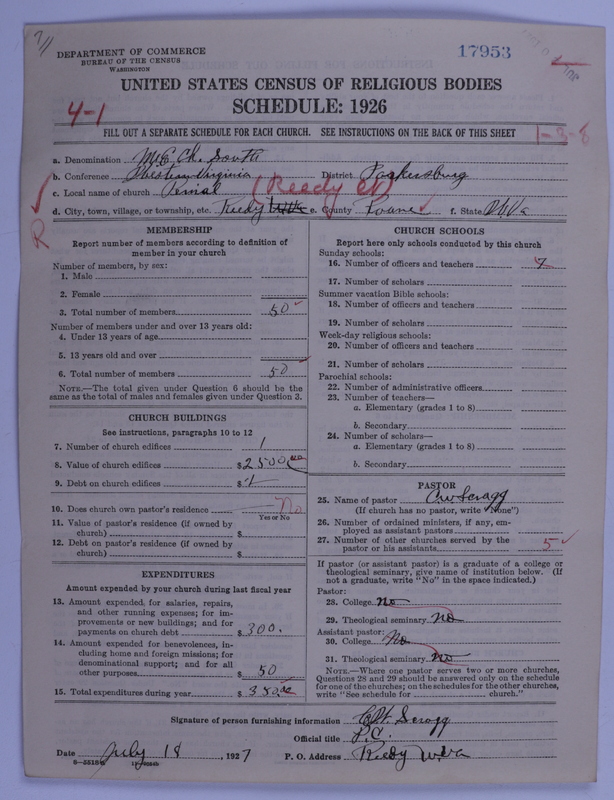 DEPARTMENT OF COMMERCE
BUREAU OF THE CENSUS
WASHINGTON
17953
UNITED STATES CENSUS OF RELIGIOUS BODIES
SCHEDULE: 1926
4-1
FILL OUT A SEPARATE SCHEDULE FOR EACH CHURCH. SEE INSTRUCTIONS ON THE BACK OF THIS SHEET
1-3-8
a. Denomination M.E. Ch. South
b. Conference Western Virginia District Parkersburg
c. Local name of church (Reedy ct)
d. City, town, village, or township, etc. Reedy W.Va e. County Roane f. State W.Va
R
MEMBERSHIP
Report number of members according to definition of
member in your church
Number of members, by sex:
1. Male
2. Female
3. Total number of members 50
Number of members under and over 13 years old:
4. Under 13 years of age
5. 13 years old and over
6. Total number of members 50
NOTE.—The total given under Question 6 should be the
same as the total of males and females given under Question 3.
CHURCH BUILDINGS
See instructions, paragraphs 10 to 12
7. Number of church edifices 1
8. Value of church edifices $2500.00
9. Debt on church edifices $
10. Does church own pastor's residence No
Yes or No
11. Value of pastor's residence (if owned by
church) $
12. Debt on pastor's residence (if owned by
church) $
EXPENDITURES
Amount expended by your church during last fiscal year
13. Amount expended for salaries, repairs,
and other running expenses; for im-
provements or new buildings; and for
payments on church debt $300.
14. Amount expended for benevolences, in-
cluding home and foreign missions; for
denominational support; and for all
other purposes $50
15. Total expenditures during year $350.00
CHURCH SCHOOLS
Report here only schools conducted by this church
Sunday schools:
16. Number of officers and teachers 7
17. Number of scholars
Summer vacation Bible schools:
18. Number of officers and teachers
19. Number of scholars
Week-day religious schools:
20. Number of officers and teachers
21. Number of scholars
Parochial schools:
22. Number of administrative officers
23. Number of teachers—
a. Elementary (grades 1 to 8)
b. Secondary
24. Number of scholars—
a. Elementary (grades 1 to 8)
b. Secondary
PASTOR
25. Name of pastor C W Scragg
(If church has no pastor, write "None")
26. Number of ordained ministers, if any, em-
ployed as assistant pastors
27. Number of other churches served by the
pastor or his assistants 5
If pastor (or assistant pastor) is a graduate of a college or
theological seminary, give name of institution below. (If
not a graduate, write "No" in the space indicated.)
Pastor:
28. College no
29. Theological seminary no
Assistant pastor:
30. College No
31. Theological seminary no
NOTE.—Where one pastor serves two or more churches,
Questions 28 and 29 should be answered only on the schedule
for one of the churches; on the schedules for the other churches,
write "See schedule for church."
Signature of person furnishing information C W Scragg
Official title P.C.
Date July 18, 1927 P. O. Address Reedy W.Va